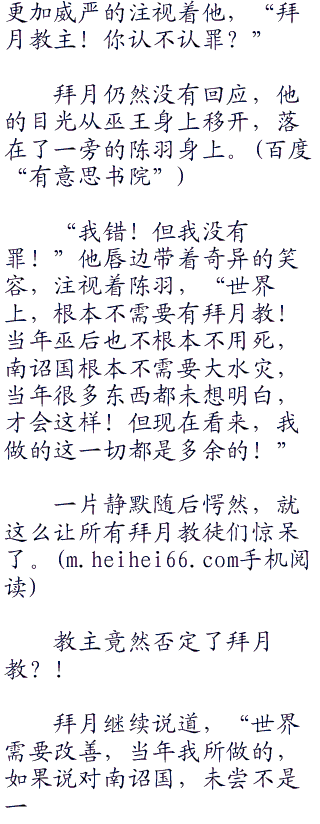 更加威严的注视着他，“拜
月教主！你认不认罪？”
拜月仍然没有回应，他
的目光从巫王身上移开，落
在了一旁的陈羽身上。(百度
“有意思书院”)
“我错！但我没有
罪！”他唇边带着奇异的笑
容，注视着陈羽，“世界
上，根本不需要有拜月教！
当年巫后也不根本不用死，
南诏国根本不需要大水灾，
当年很多东西都未想明白，
才会这样！但现在看来，我
做的这一切都是多余的！”
一片静默随后愕然，就
这么让所有拜月教徒们惊呆
了。(m.heihei66.com手机阅
读)
教主竟然否定了拜月
教？！
拜月继续说道，“世界
需要改善，当年我所做的，
如果说对南诏国，未尝不是
一